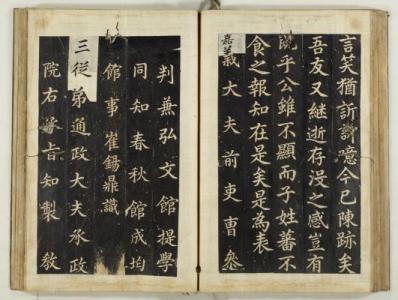 言笑猶訢訢噫今已陳跡矣
吾友又継逝存沒之感豈有
旣乎公雖不顯而子姓蕃不
食之報知在是矣是為表
嘉義大夫前吏曹叅
判兼弘文館提學
同知春秋館成均
館事崔錫鼎識
三從弟通政大夫承政
院右承旨知製敎